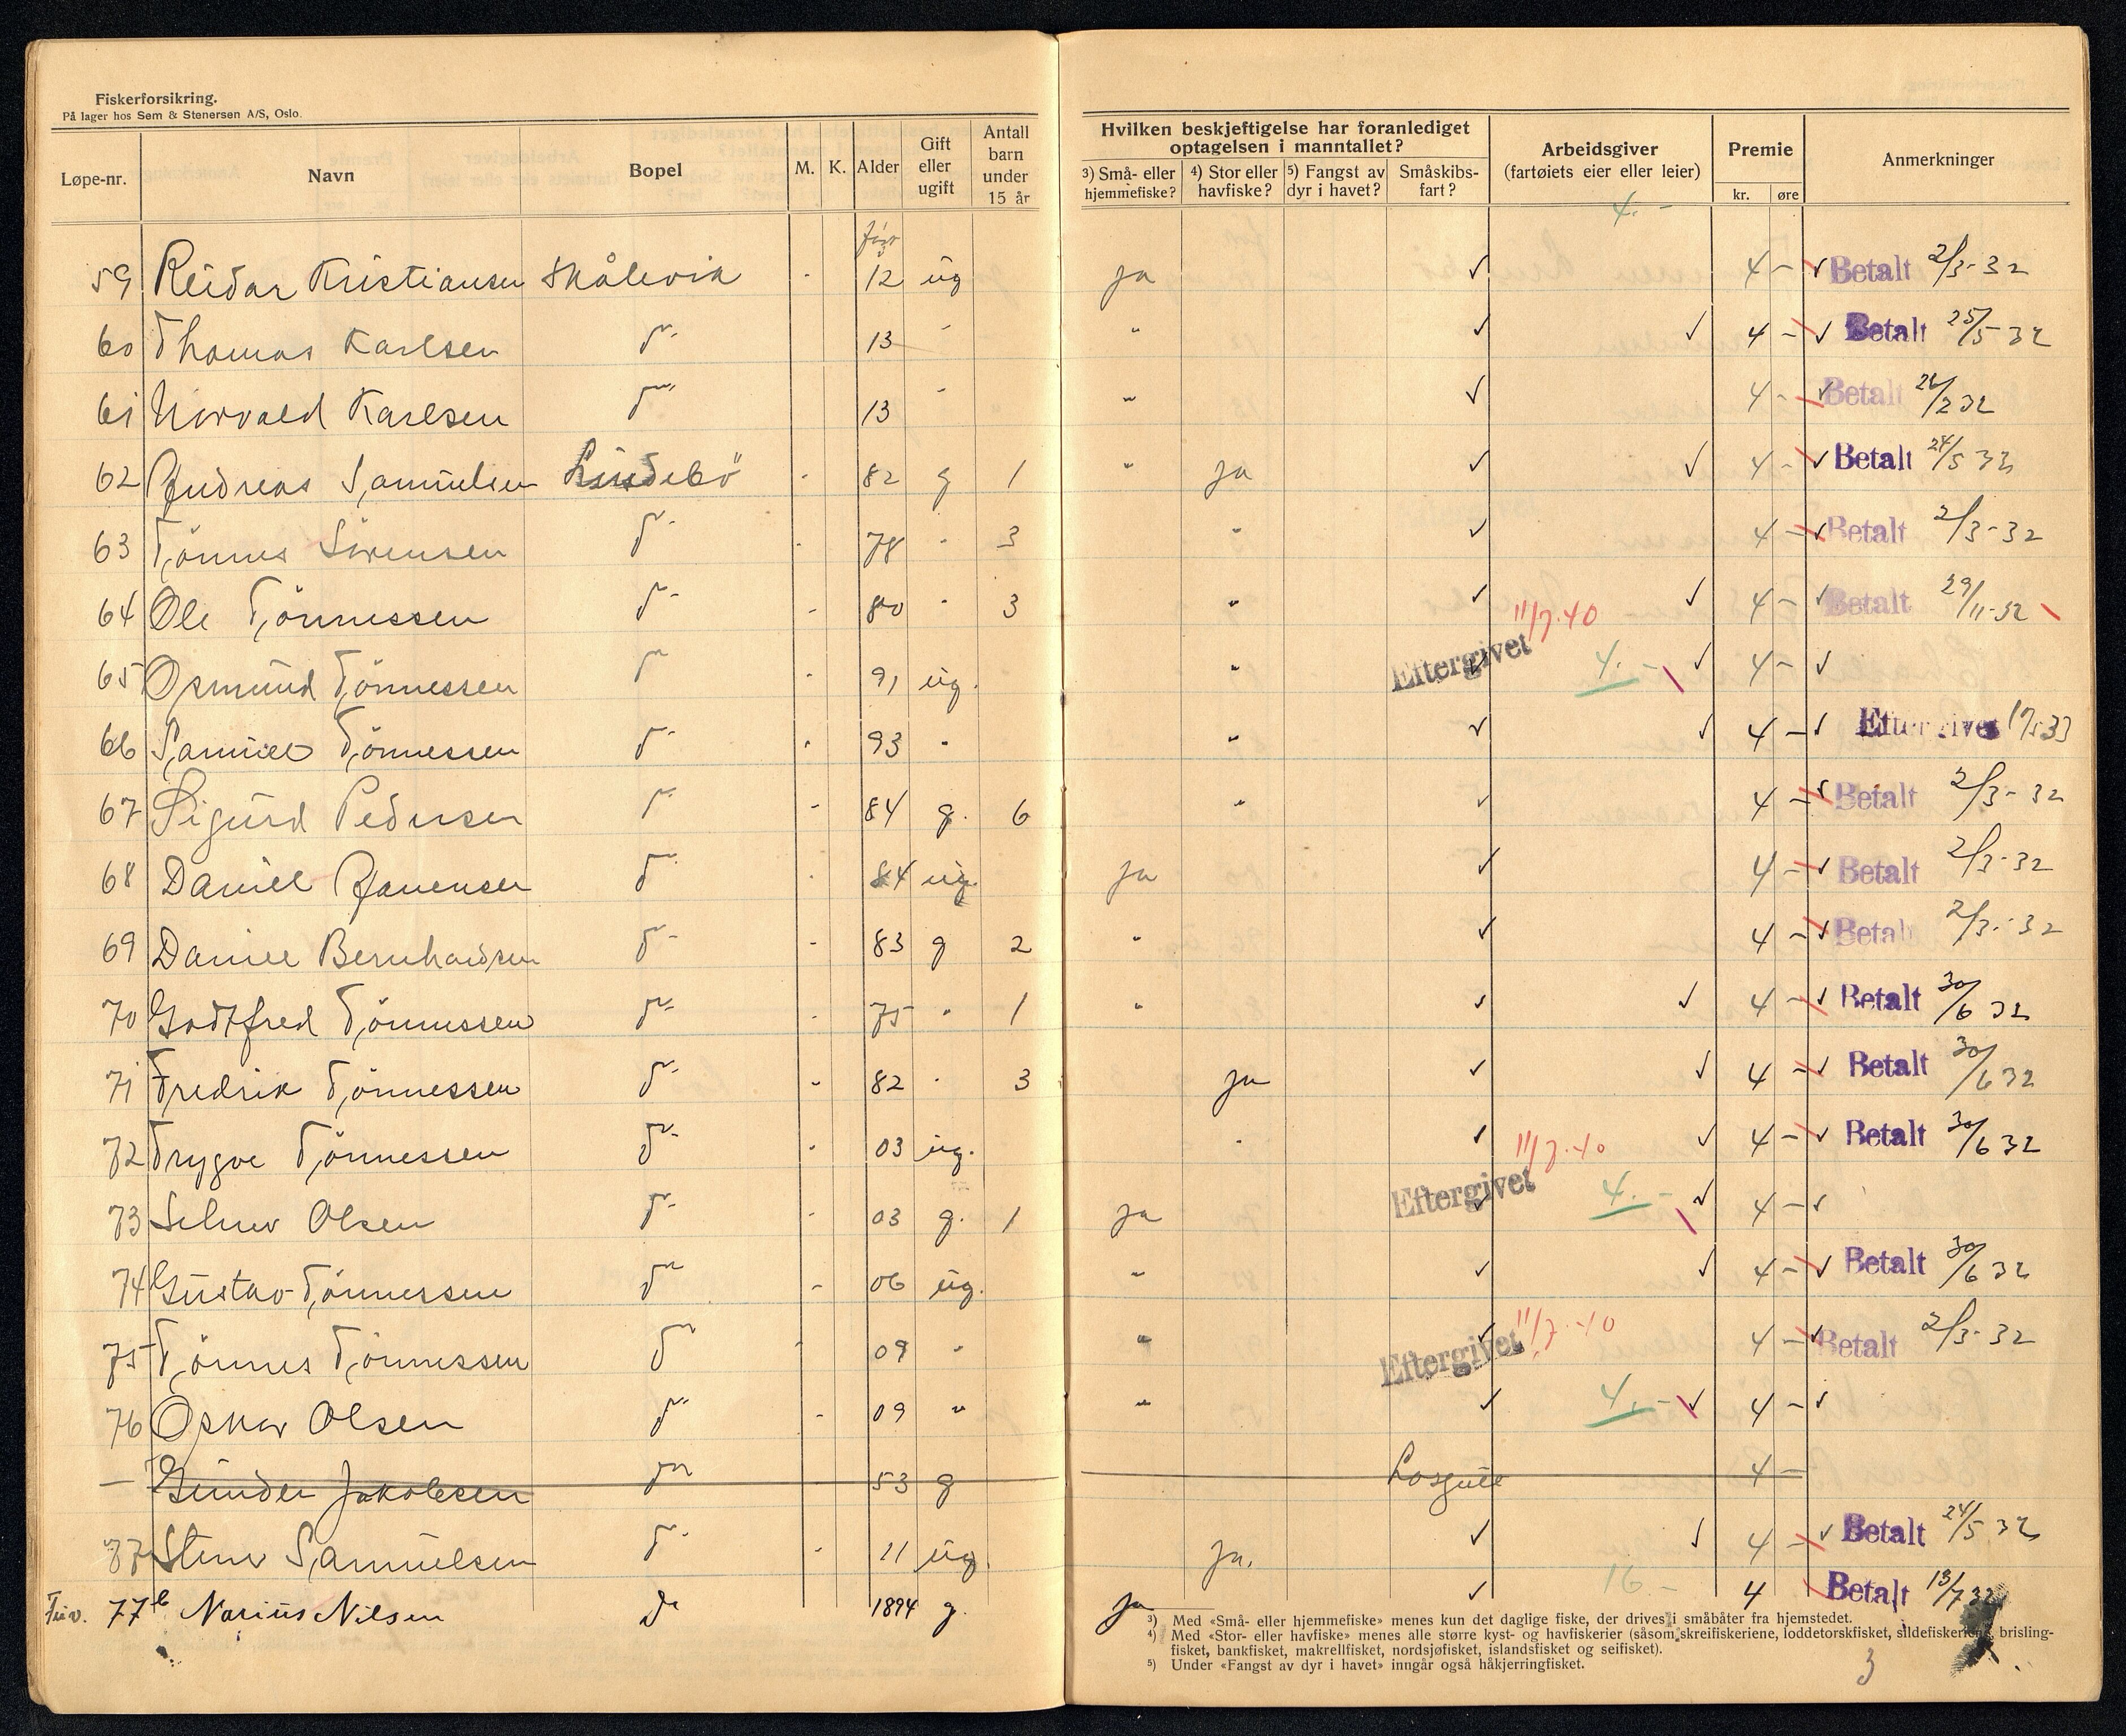 Fiskerforsikring.
På lager hos Sem & Stenersen A/S, Oslo.
Løpe-nr. Navn Bopel M. K. Alder Gift eller ugift Antall barn under 15 år
Hvilken beskjeftigelse har foranlediget optagelsen i manntallet?
3) Små- eller hjemmefiske? 4) Stor eller havfiske? 5) Fangst av dyr i havet? Småskibsfart? Arbeidsgiver (fartøiets eier eller leier) Premie kr. øre Anmerkninger
4.-
59 Reidar Kristiansen Skålevik - 12 ug ja ✓ 4 - ✓ Betalt 2/3-32
60 Thomas Karlsen do - 13 - " ✓ ✓ 4 - ✓ Betalt 25/5 32
61 Norvald Karlsen do 13 - " ✓ 4 - ✓ Betalt 26/2 32
62 Andreas Samuelsen Lindebö - 82 g 1 " ja ✓ ✓ 4 - ✓ Betalt 24/5 32
63 Tönnes Sörensen do - 78 " 3 " ✓ 4 - ✓ Betalt 2/3-32
64 Ole Tönnessen do - 80 " 3 " ✓ ✓ 4 - ✓ Betalt 29/11-32
65 Osmund Tönnessen do - 91 ug. " ✓ Eftergivet 11/7.40 4.- ✓ 4 - ✓
66 Samuel Tönnessen do - 93 " " ✓ ✓ 4 - ✓ Eftergivet 17/5 33
67 Sigurd Pedersen do - 84 g. 6 " ✓ 4 - ✓ Betalt 2/3-32
68 Daniel Jansensen do - 84 ug. ja ✓ 4 - ✓ Betalt 2/3-32
69 Daniel Bernhardsen do - 83 g 2 " ✓ 4 - ✓ Betalt 2/3-32
70 Godtfred Tönnessen do - 75 " 1 " ✓ ✓ 4 - ✓ Betalt 30/6 32
71 Fredrik Tönnessen do - 82 " 3 ja ✓ ✓ 4 - ✓ Betalt 30/6 32
72 Trygve Tönnessen do - 03 ug. " ✓ ✓ 4 - ✓ Betalt 30/6 32
73 Selmer Olsen do - 03 g. 1 ja ✓ Eftergivet 11/7.40 4.- ✓ 4 - ✓
74 Gustav Tönnessen do - 06 ug. " ✓ ✓ 4 - ✓ Betalt 30/6 32
75 Tönnes Tönnessen do - 09 " " ✓ 4 - ✓ Betalt 2/3-32
76 Oskar Olsen do - 09 " " ✓ Eftergivet 11/7.40 4.- ✓ 4 - ✓
- Gunder Jakobsen do 53 g Losgutt 4 -
77 Stener Samuelsen do - 11 ug. ja. ✓ ✓ 4 - ✓ Betalt 24/5 32
77b Narius Nilsen do 1894 g. ja ✓ 16.- 4 Betalt 13/7 32
3) Med «Små- eller hjemmefiske» menes kun det daglige fiske, der drives i småbåter fra hjemstedet.
4) Med «Stor- eller havfiske» menes alle større kyst- og havfiskerier (såsom skreifiskeriene, loddetorskfisket, sildefiskeriene, brisling-
fisket, bankfisket, makrellfisket, nordsjøfisket, islandsfisket og seifisket).
5) Under «Fangst av dyr i havet» inngår også håkjerringfisket.
3